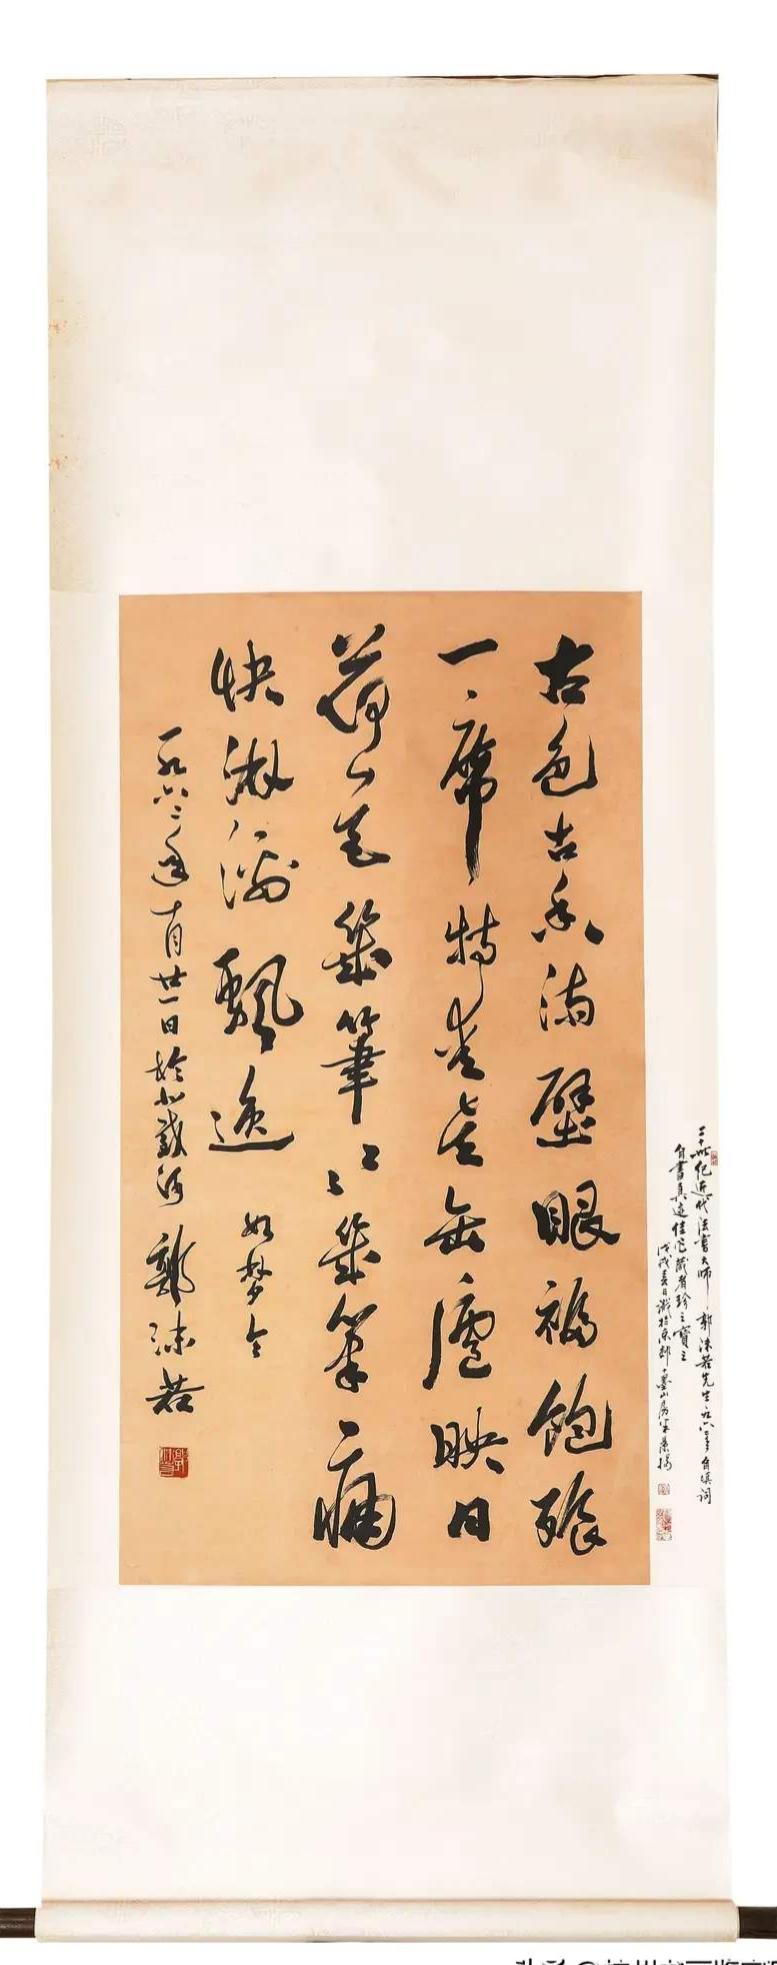 古色古香满壁眼福饱餐
一席特爱吴缶庐映日
荷〻花几笔〻〻几笔痛
快淋〻漓飘逸 如梦令
一九六二年十月廿一日於北戴河 郭沫若
二十世纪近代法书大师郭沫若先生一九六二年自填词
自书真迹佳作藏者珍之宝之
戊戌春日识於京郊